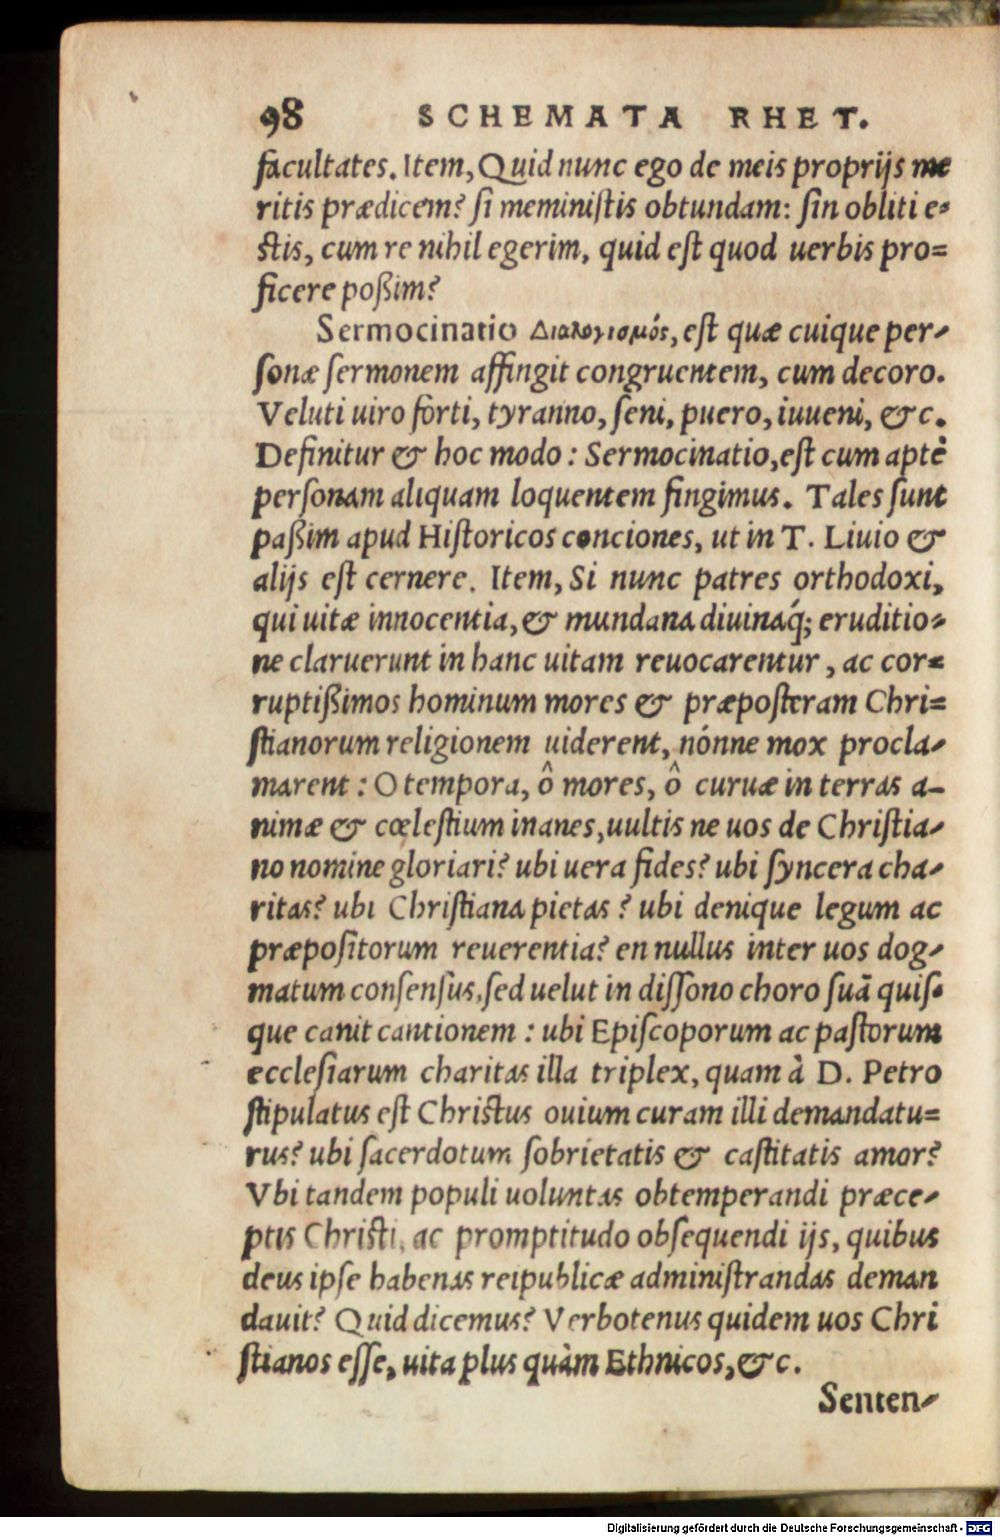 98 SCHEMATA RHET.
facultates. Item, Quid nunc ego de meis proprijs me
ritis prædicem? ſi meminiſtis obtundam: ſin obliti e-
ſtis, cum re nihil egerim, quid eſt quod uerbis pro=
ficere poßim?
Sermocinatio Διαλογισμός, eſt quæ cuique per-
ſonæ ſermonem affingit congruentem, cum decoro.
Veluti uiro forti, tyranno, ſeni, puero, iuueni, &c.
Definitur & hoc modo: Sermocinatio, eſt cum aptè
perſonam aliquam loquentem fingimus. Tales ſunt
paßim apud Hiſtoricos conciones, ut in T. Liuio &
alijs eſt cernere. Item, Si nunc patres orthodoxi,
qui uitæ innocentia, & mundana diuinaq́; eruditio-
ne claruerunt in hanc uitam reuocarentur, ac cor=
ruptißimos hominum mores & præpoſteram Chri=
ſtianorum religionem uiderent, nónne mox procla-
marent: O tempora, ô mores, ô curuæ in terras a-
nimæ & cœleſtium inanes, uultis ne uos de Chriſtia-
no nomine gloriari? ubi uera fides? ubi ſyncera cha-
ritas? ubi Chriſtiana pietas? ubi denique legum ac
præpoſitorum reuerentia? en nullus inter uos dog-
matum conſenſus, ſed uelut in diſſono choro ſuã quiſ-
que canit cantionem: ubi Epiſcoporum ac paſtorum
eccleſiarum charitas illa triplex, quam à D. Petro
ſtipulatus eſt Chriſtus ouium curam illi demandatu=
rus? ubi ſacerdotum ſobrietatis & caſtitatis amor?
Vbi tandem populi uoluntas obtemperandi præce-
ptis Chriſti, ac promptitudo obſequendi ijs, quibus
deus ipſe habenas reipublicæ adminiſtrandas deman
dauit? Quid dicemus? Verbotenus quidem uos Chri
ſtianos eſſe, uita plus quàm Ethnicos, &c.
Senten-
Digitalisierung gefördert durch die Deutsche Forschungsgemeinschaft - DFG